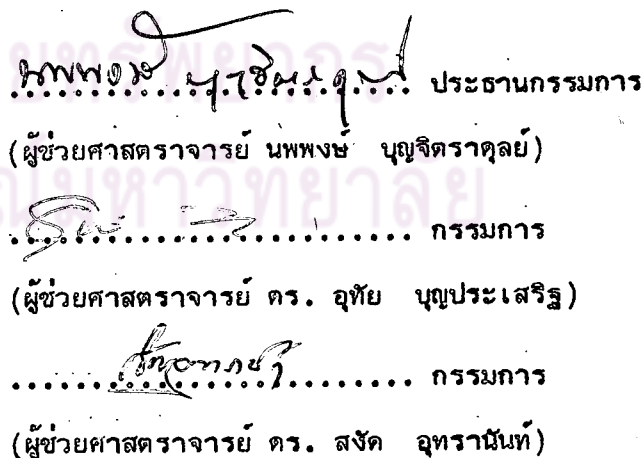 นพพงษ์ บุญจิตราดุลย์ ประธานกรรมการ
(ผู้ช่วยศาสตราจารย์ นพพงษ์ บุญจิตราดุลย์)
กรรมการ
(ผู้ช่วยศาสตราจารย์ ดร. อุทัย บุญประเสริฐ)
กรรมการ
(ผู้ช่วยศาสตราจารย์ ดร. สงัด อุทรานันท์)